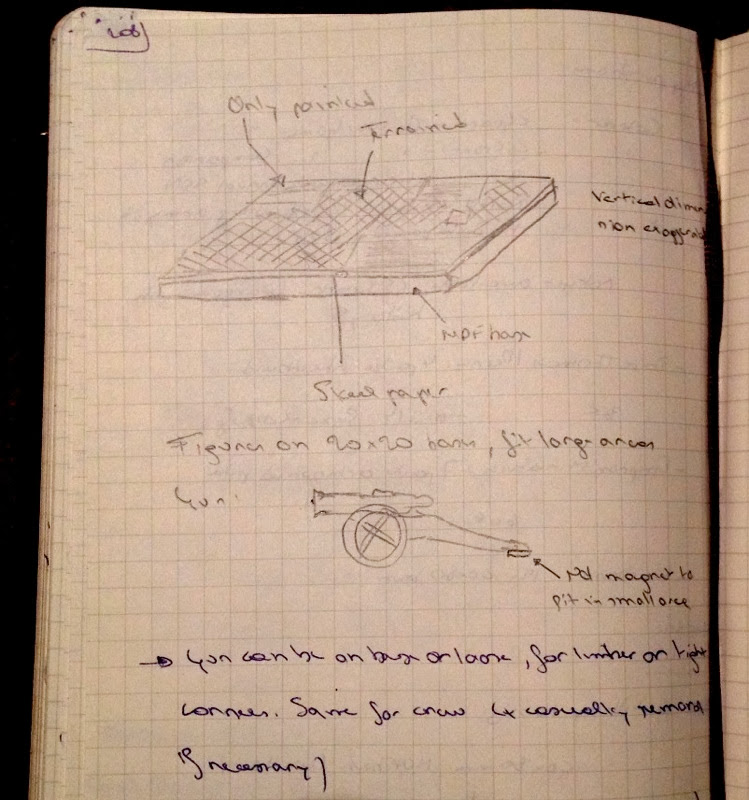 Only painted
Terrained
Vertical dimen
sion exaggerated
MDF base
Steel paper
Figures on 20x20 base, fit large areas
Gun:
Nd magnet to
fit in small area
→ Gun can be on base or loose, for limber or tight
corners. Same for crew (+ casualty removal
if necessary)